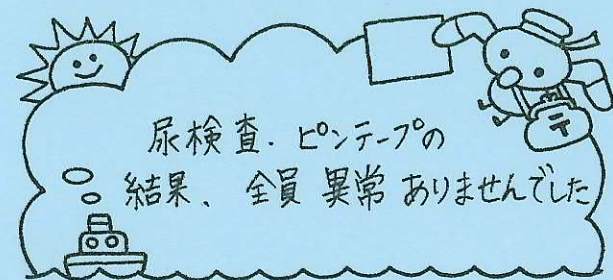 尿検査・ピンテープの
結果、全員 異常 ありませんでした
〒